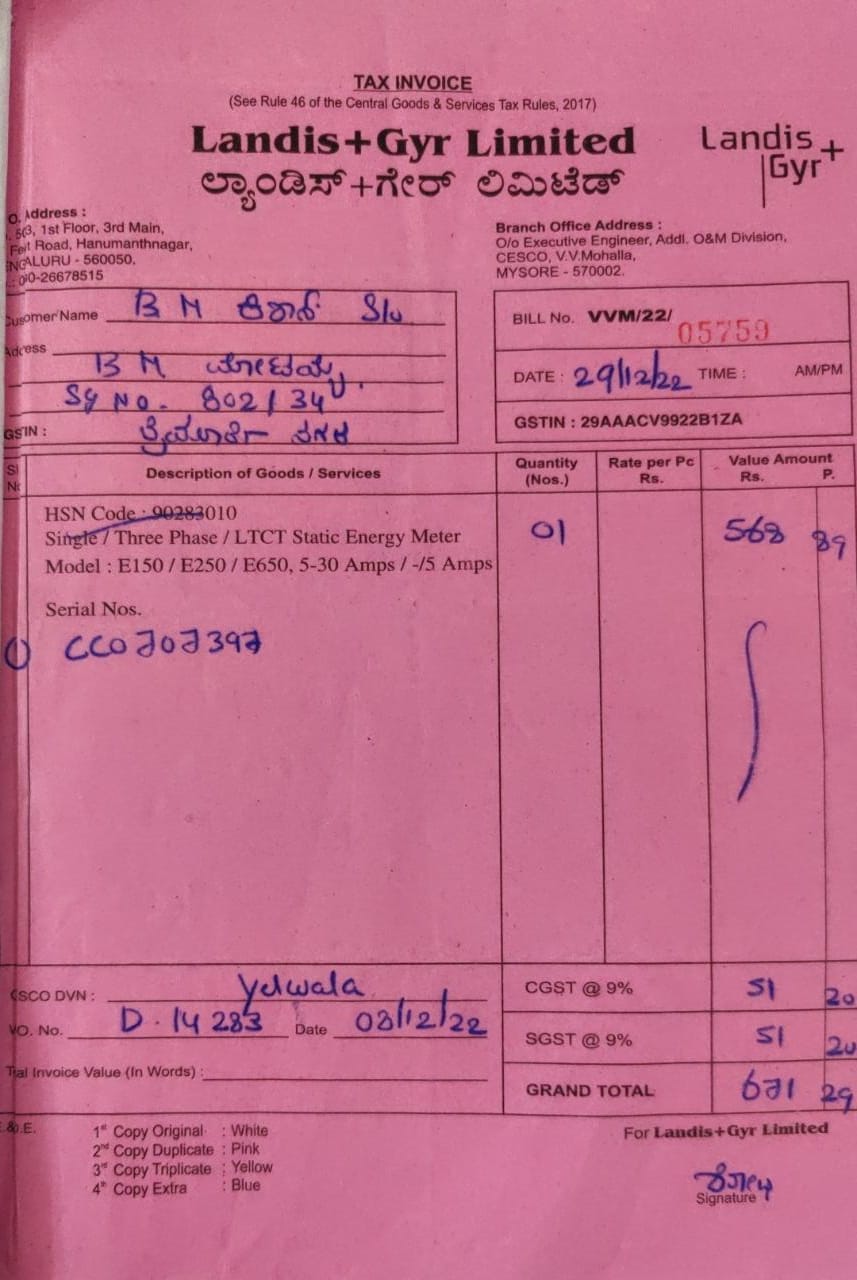 TAX INVOICE
(See Rule 46 of the Central Goods & Services Tax Rules, 2017)
Landis+Gyr Limited
ಲ್ಯಾಂಡಿಸ್+ಗೇರ್ ಲಿಮಿಟೆಡ್
Landis Gyr+
Address :
1st Floor, 3rd Main,
Road, Hanumanthnagar,
ALURU - 560050.
0-26678515
Branch Office Address :
O/o Executive Engineer, Addl. O&M Division,
CESCO, V.V.Mohalla,
MYSORE - 570002.
omer Name B M S/o
dress B M
Sy No. 802/34
GSTIN :
BILL No. VVM/22/ 05759
DATE : 29/12/22 TIME : AM/PM
GSTIN : 29AAACV9922B1ZA
Sl No Description of Goods / Services Quantity (Nos.) Rate per Pc Rs. Value Amount Rs. P.
HSN Code : 90283010
Single / Three Phase / LTCT Static Energy Meter 01 568 89
Model : E150 / E250 / E650, 5-30 Amps / -/5 Amps
Serial Nos.
1) CC0707397
SCO DVN : Yelwala
O. No. D. 14283 Date 08/12/22
al Invoice Value (In Words) :
CGST @ 9% 51 20
SGST @ 9% 51 20
GRAND TOTAL 671 29
.E.
1st Copy Original : White
2nd Copy Duplicate : Pink
3rd Copy Triplicate : Yellow
4th Copy Extra : Blue
For Landis+Gyr Limited
Signature